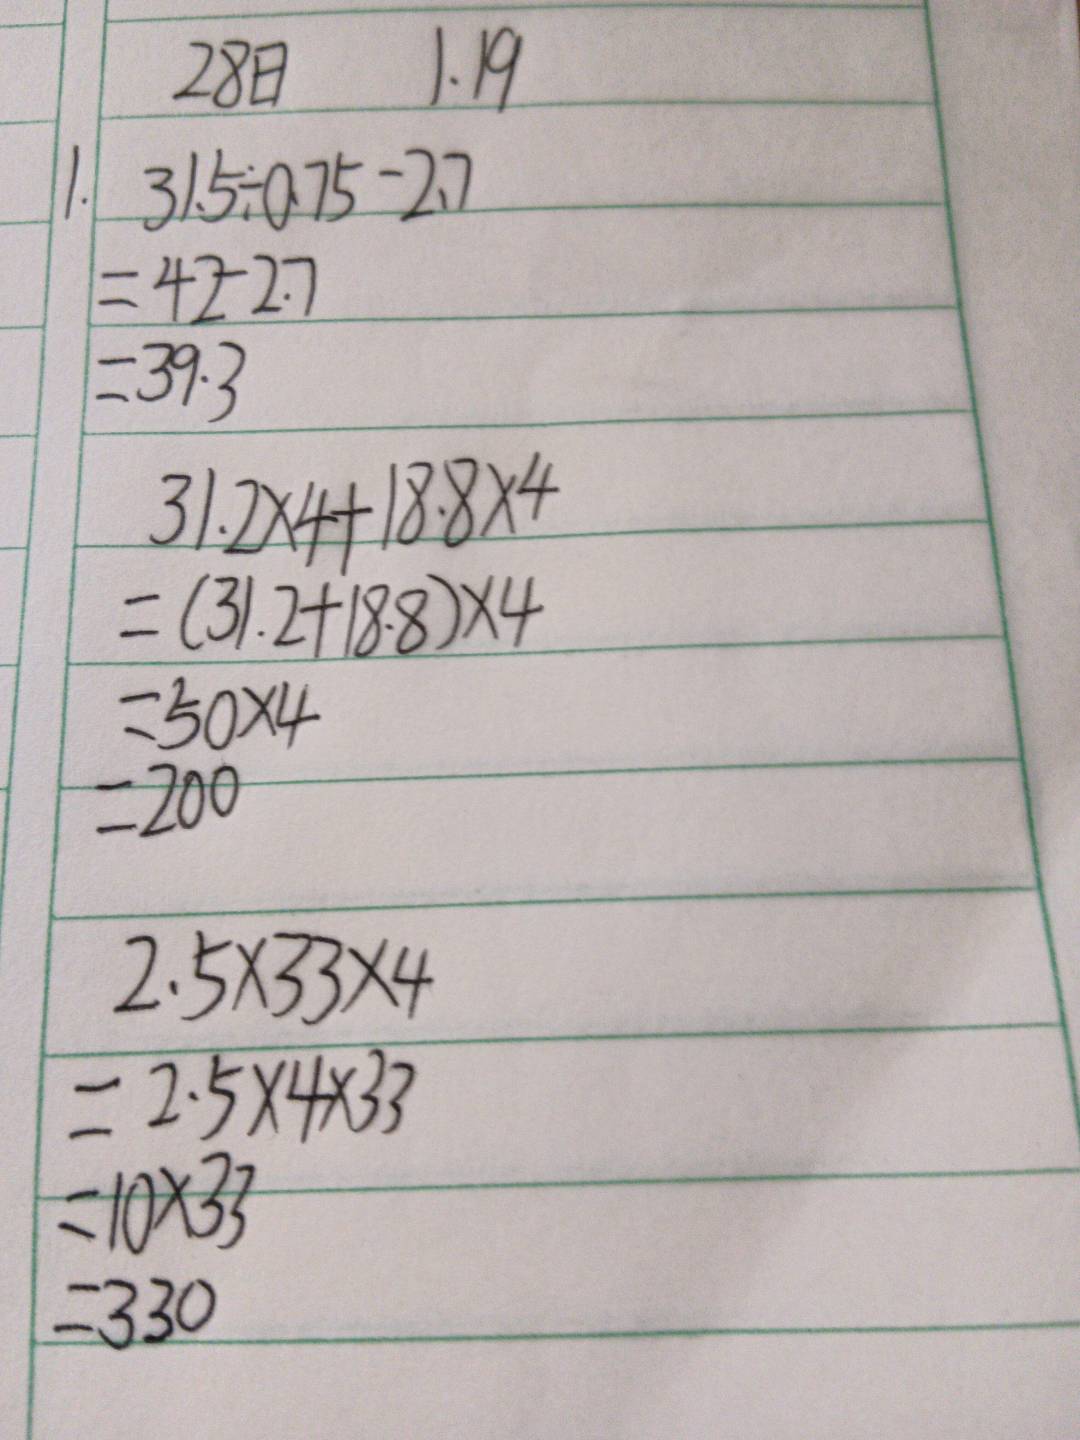 28日 1.19
1. 31.5÷0.75-2.7
=42-2.7
=39.3
31.2×4+18.8×4
=(31.2+18.8)×4
=50×4
=200
2.5×33×4
=2.5×4×33
=10×33
=330